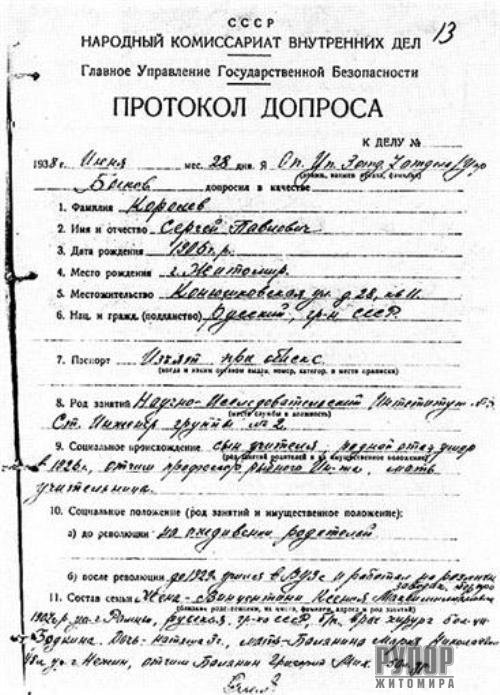 СССР
13
НАРОДНЫЙ КОМИССАРИАТ ВНУТРЕННИХ ДЕЛ
Главное Управление Государственной Безопасности
ПРОТОКОЛ ДОПРОСА
К ДЕЛУ №
1938 г. Июня мес. 28 дня. Я
Быков допросил в качестве
1. Фамилия Королев
2. Имя и отчество Сергей Павлович
3. Дата рождения г.р.
4. Место рождения г. Житомир.
5. Местожительство Конюшковская ул. д. 28, кв 11.
6. Нац. и гражд. (подданство) Русский, гр-н СССР.
7. Паспорт Изъят при обыске
(когда и каким органом выдан, номер, категор. и место прописки)
8. Род занятий Научно-Исследовательский Институт № 3
(место службы и должность)
Ст. Инженер группы № 2
9. Социальное происхождение сын учителя, родной отец умер
(род занятий родителей и их имущественное положение)
в отчим профессор мать
учительница.
10. Социальное положение (род занятий и имущественное положение):
а) до революции на иждивении родителей
б) после революции до 1929 учился в ВУЗе и работал на
11. Состав семьи Жена - Винцентини Ксения Максимилиановна
(близкие родственники, их имена, фамилии, адреса и род занятий)
русская, гр-ка СССР, врач хирург
Боткина. Дочь - Наташа мать - Баланина Мария Николаевна
г. Нежин, отчим Баланин Григорий Мих.
РУПОР
ЖИТОМИРА